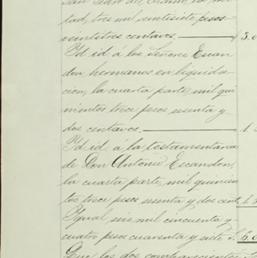 tad, tres mil veintisiete pesos
veintitres centavos.
Id id á los Señores Escan
don hermanos en liquida
cion, la cuarta parte, mil qui
nientos trece pesos sesenta y
dos centavos.
Id id á la testamentaria
de Don Antonio Escandon,
la cuarta parte, mil quinien
tos trece pesos sesenta y dos cent.
Igual seis mil cincuenta y
cuatro pesos cuarenta y siete
Que los dos comparecientes